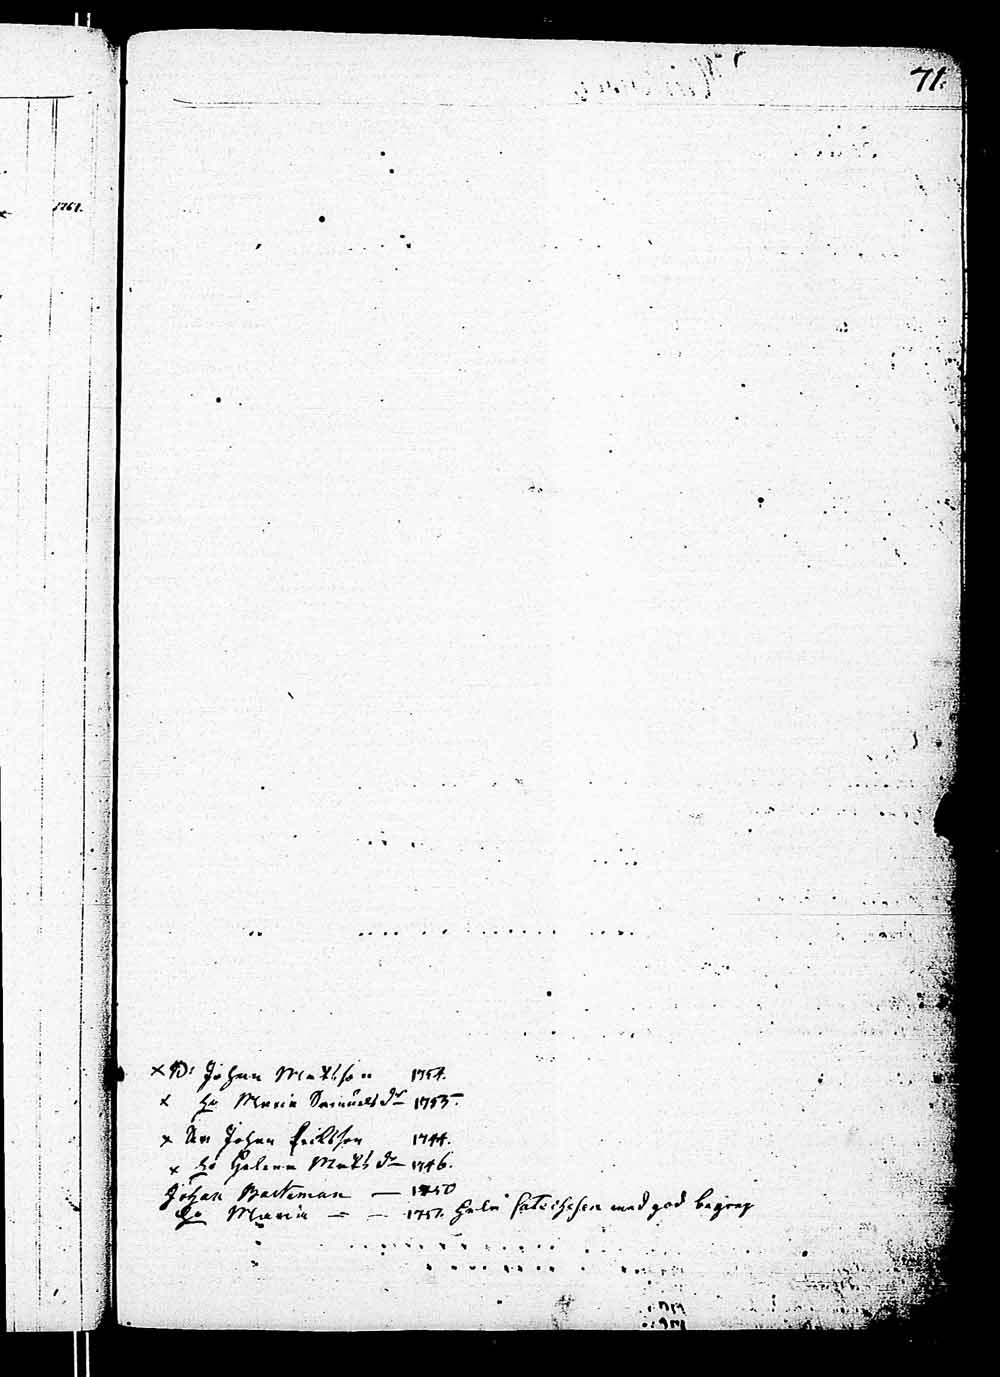 71.
1761.
× D: Johan Mattsson 1754.
× Ho Maria Samuels dr 1753.
× Son Johan Eriksson 1744.
× Ho Helena Matts dr 1746.
Johan Backman — 1750
Ho Maria — — 1751. Hela Catechesen med god begrep